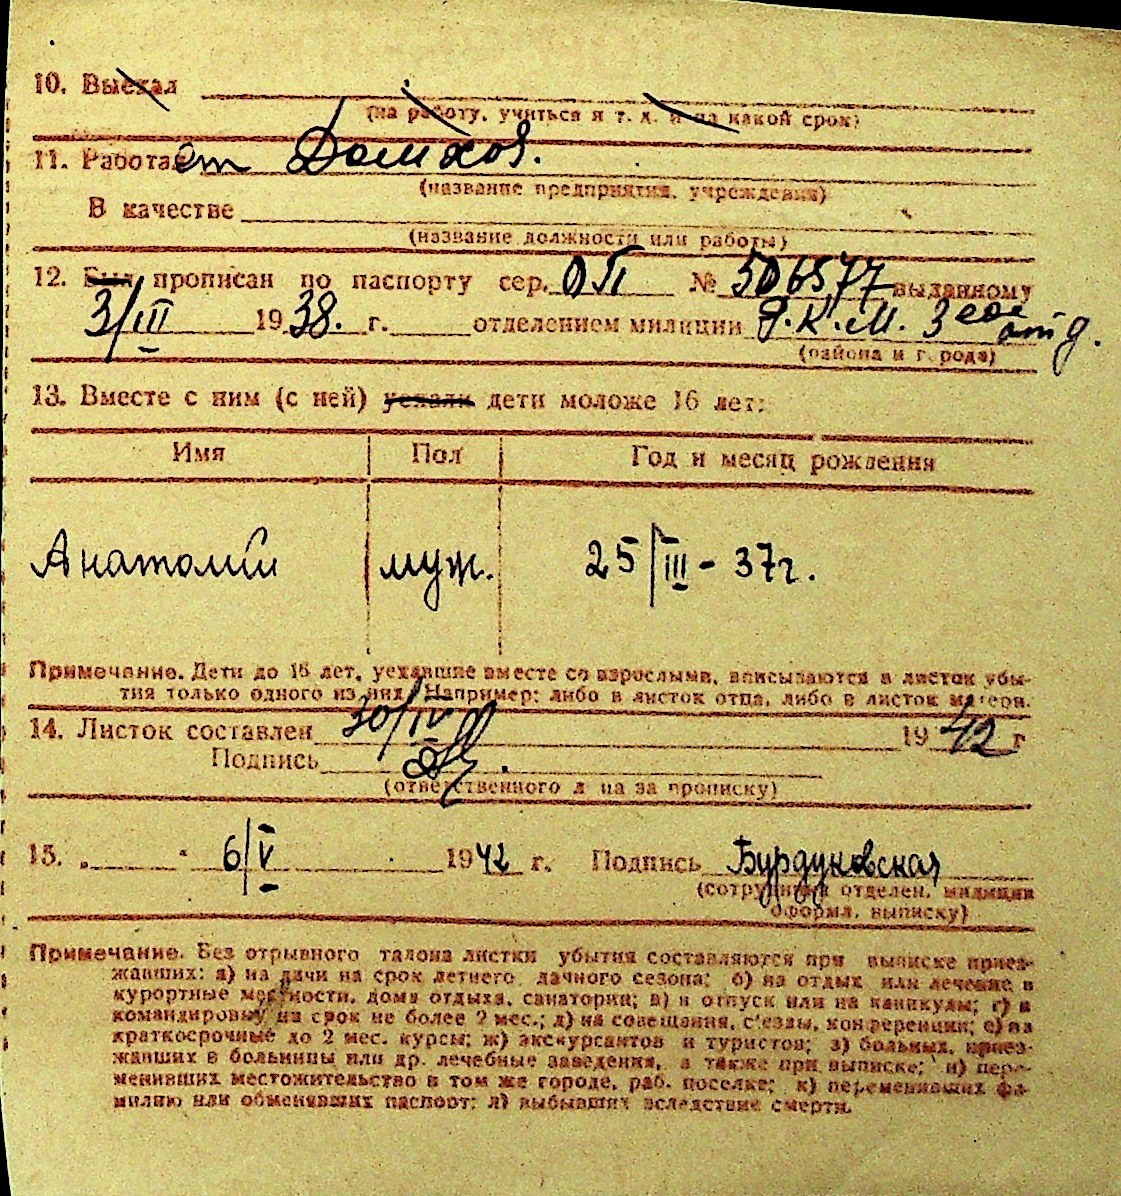 10. Выехал
(на работу, учиться и т. д. и на какой срок)
11. Работает Домхоз.
(название предприятия, учреждения)
В качестве
(название должности или работы)
12. Был прописан по паспорту сер. ОП № 506577 выданному
3/III 1938. г. отделением милиции Р.К.М. 3 ее отд.
(района и города)
13. Вместе с ним (с ней) уехали дети моложе 16 лет:
Имя Пол Год и месяц рождения
Анатолий муж. 25/III - 37г.
Примечание. Дети до 16 лет, уехавшие вместе со взрослыми, вписываются в листок убы-
тия только одного из них. Например: либо в листок отца, либо в листок матери.
14. Листок составлен 30/IV 1942 г
Подпись
(ответственного лица за прописку)
15. „ " 6/V 1942 г. Подпись Бурдуковская
(сотрудника отделен. милиции
оформл. выписку)
Примечание. Без отрывного талона листки убытия составляются при выписке приез-
жавших: а) на дачи на срок летнего дачного сезона; б) на отдых или лечение в
курортные местности, дома отдыха, санатории; в) в отпуск или на каникулы; г) в
командировку на срок не более 2 мес.; д) на совещания, с'езды, конференции; е) на
краткосрочные до 2 мес. курсы; ж) экскурсантов и туристов; з) больных, приез-
жавших в больницы или др. лечебные заведения, а также при выписке; и) пере-
менивших местожительство в том же городе, раб. поселке; к) переменивших фа-
милию или обменявших паспорт; л) выбывших вследствие смерти.